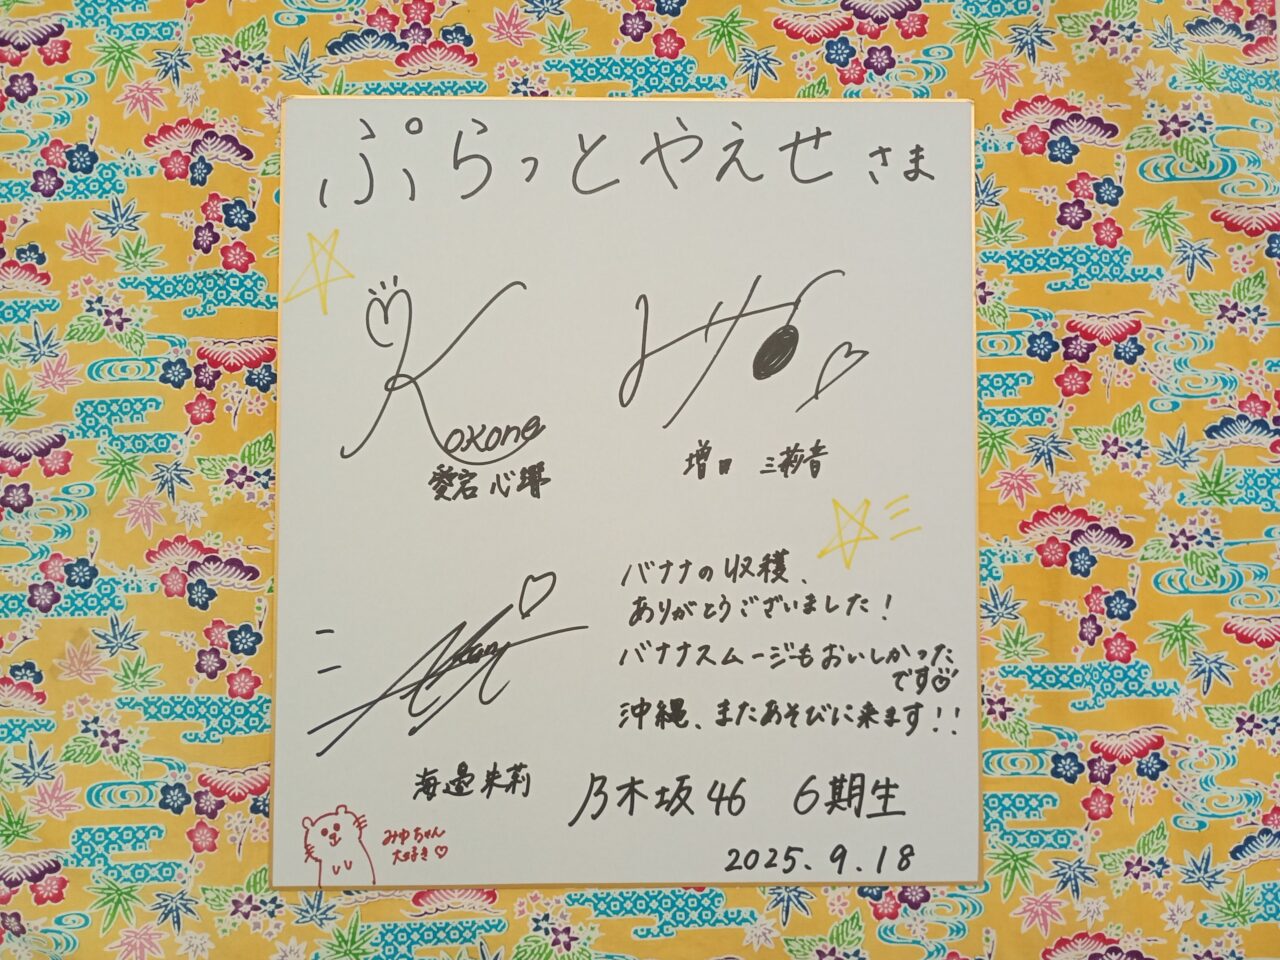 ぷらっとやえせ さま
Kokone
愛宕 心響
みお
増田 三莉音
バナナの収穫、
ありがとうございました!
バナナスムージーもおいしかった
です♡
沖縄、またあそびに来ます!!
海邉朱莉
乃木坂46 6期生
みゆちゃん
大好き♡
2025.9.18